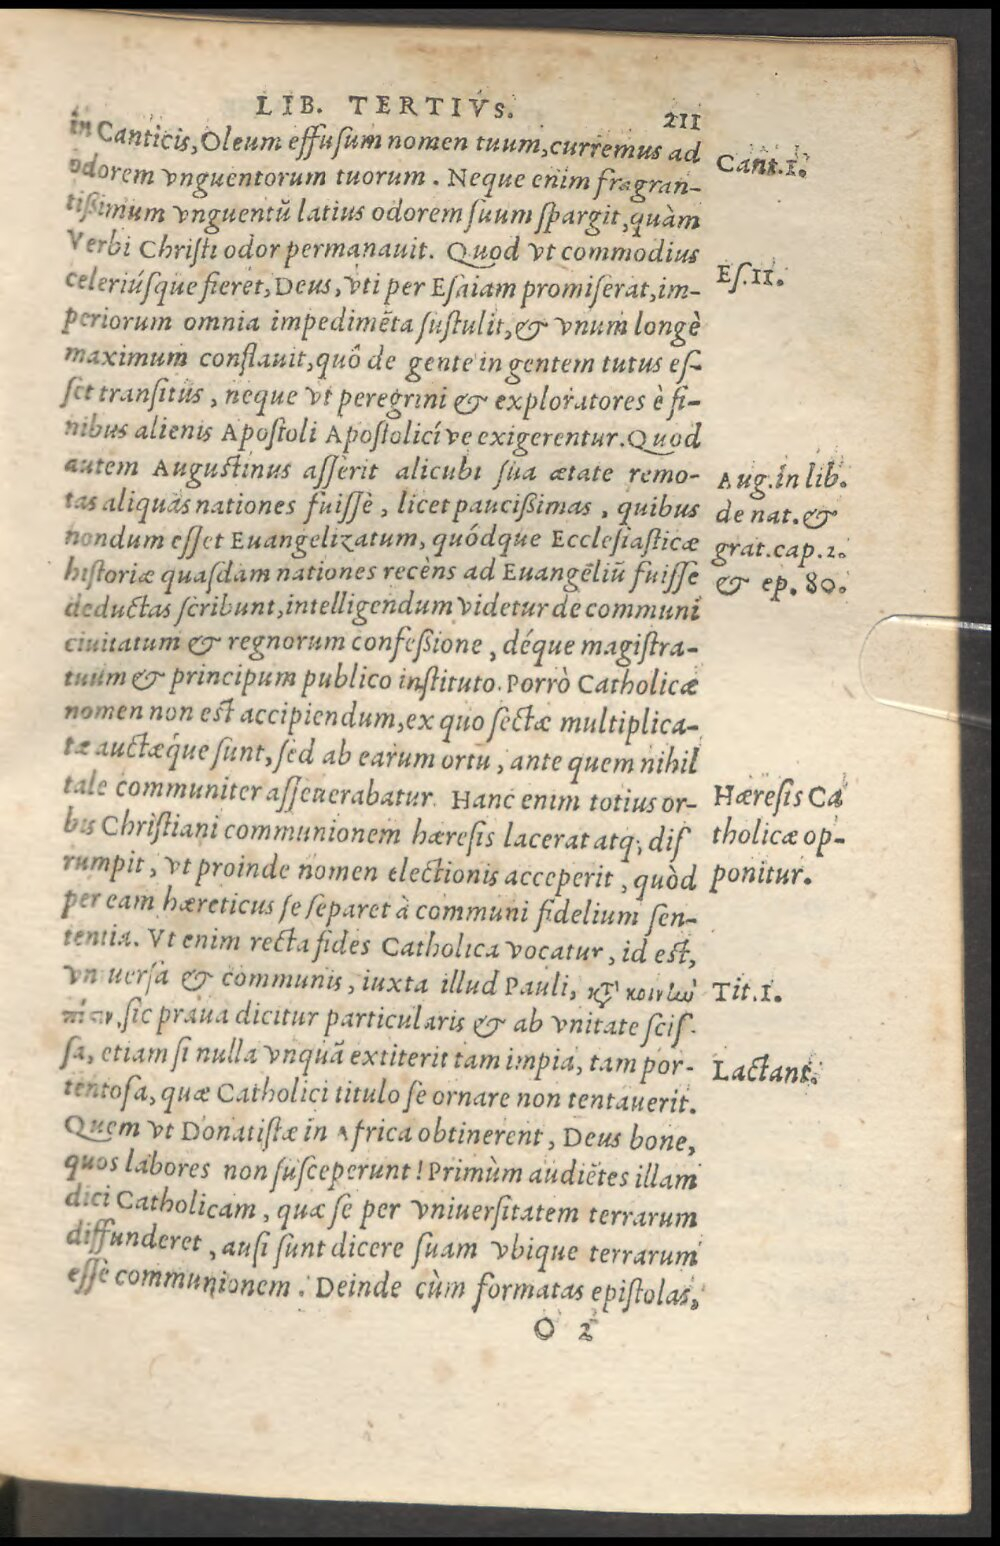 LIB. TERTIVS. 211
in Canticis, Oleum effusum nomen tuum, curremus ad
odorem vnguentorum tuorum. Neque enim fragran-
tißimum vnguentũ latius odorem suum spargit, quàm
Verbi Christi odor permanauit. Quod vt commodius
celeriúsque fieret, Deus, vti per Esaiam promiserat, im-
periorum omnia impedimẽta sustulit, & vnum longè
maximum conflauit, quô de gente in gentem tutus es-
set transitus, neque vt peregrini & exploratores è fi-
nibus alienis Apostoli Apostolicíve exigerentur. Quod
autem Augustinus asserit alicubi sua ætate remo-
tas aliquas nationes fuisse, licet paucißimas, quibus
nondum esset Euangelizatum, quódque Ecclesiasticæ
historiæ quasdam nationes recèns ad Euangeliũ fuisse
deductas scribunt, intelligendum videtur de communi
ciuitatum & regnorum confeßione, déque magistra-
tuum & principum publico instituto. Porrò Catholicæ
nomen non est accipiendum, ex quo sectæ multiplica-
tæ auctæque sunt, sed ab earum ortu, ante quem nihil
tale communiter asseuerabatur. Hanc enim totius or-
bis Christiani communionem hæresis lacerat atq; dis
rumpit, vt proinde nomen electionis acceperit, quòd
per eam hæreticus se separet à communi fidelium sen-
tentia. Vt enim recta fides Catholica vocatur, id est,
vniuersa & communis, iuxta illud Pauli, κτ̀ κοινὼ
πίςιν, sic praua dicitur particularis & ab vnitate scis-
sa, etiam si nulla vnquã extiterit tam impia, tam por-
tentosa, quæ Catholici titulo se ornare non tentauerit.
Quem vt Donatistæ in Africa obtinerent, Deus bone,
quos labores non susceperunt! Primùm audiẽtes illam
dici Catholicam, quæ se per vniuersitatem terrarum
diffunderet, ausi sunt dicere suam vbique terrarum
esse communionem. Deinde cùm formatas epistolas,
O 2
Cant. 1.
Es. 11.
Aug. in lib.
de nat. &
grat. cap. 2.
& ep. 80.
Hæresis Ca
tholicæ op-
ponitur.
Tit. 1.
Lactant.